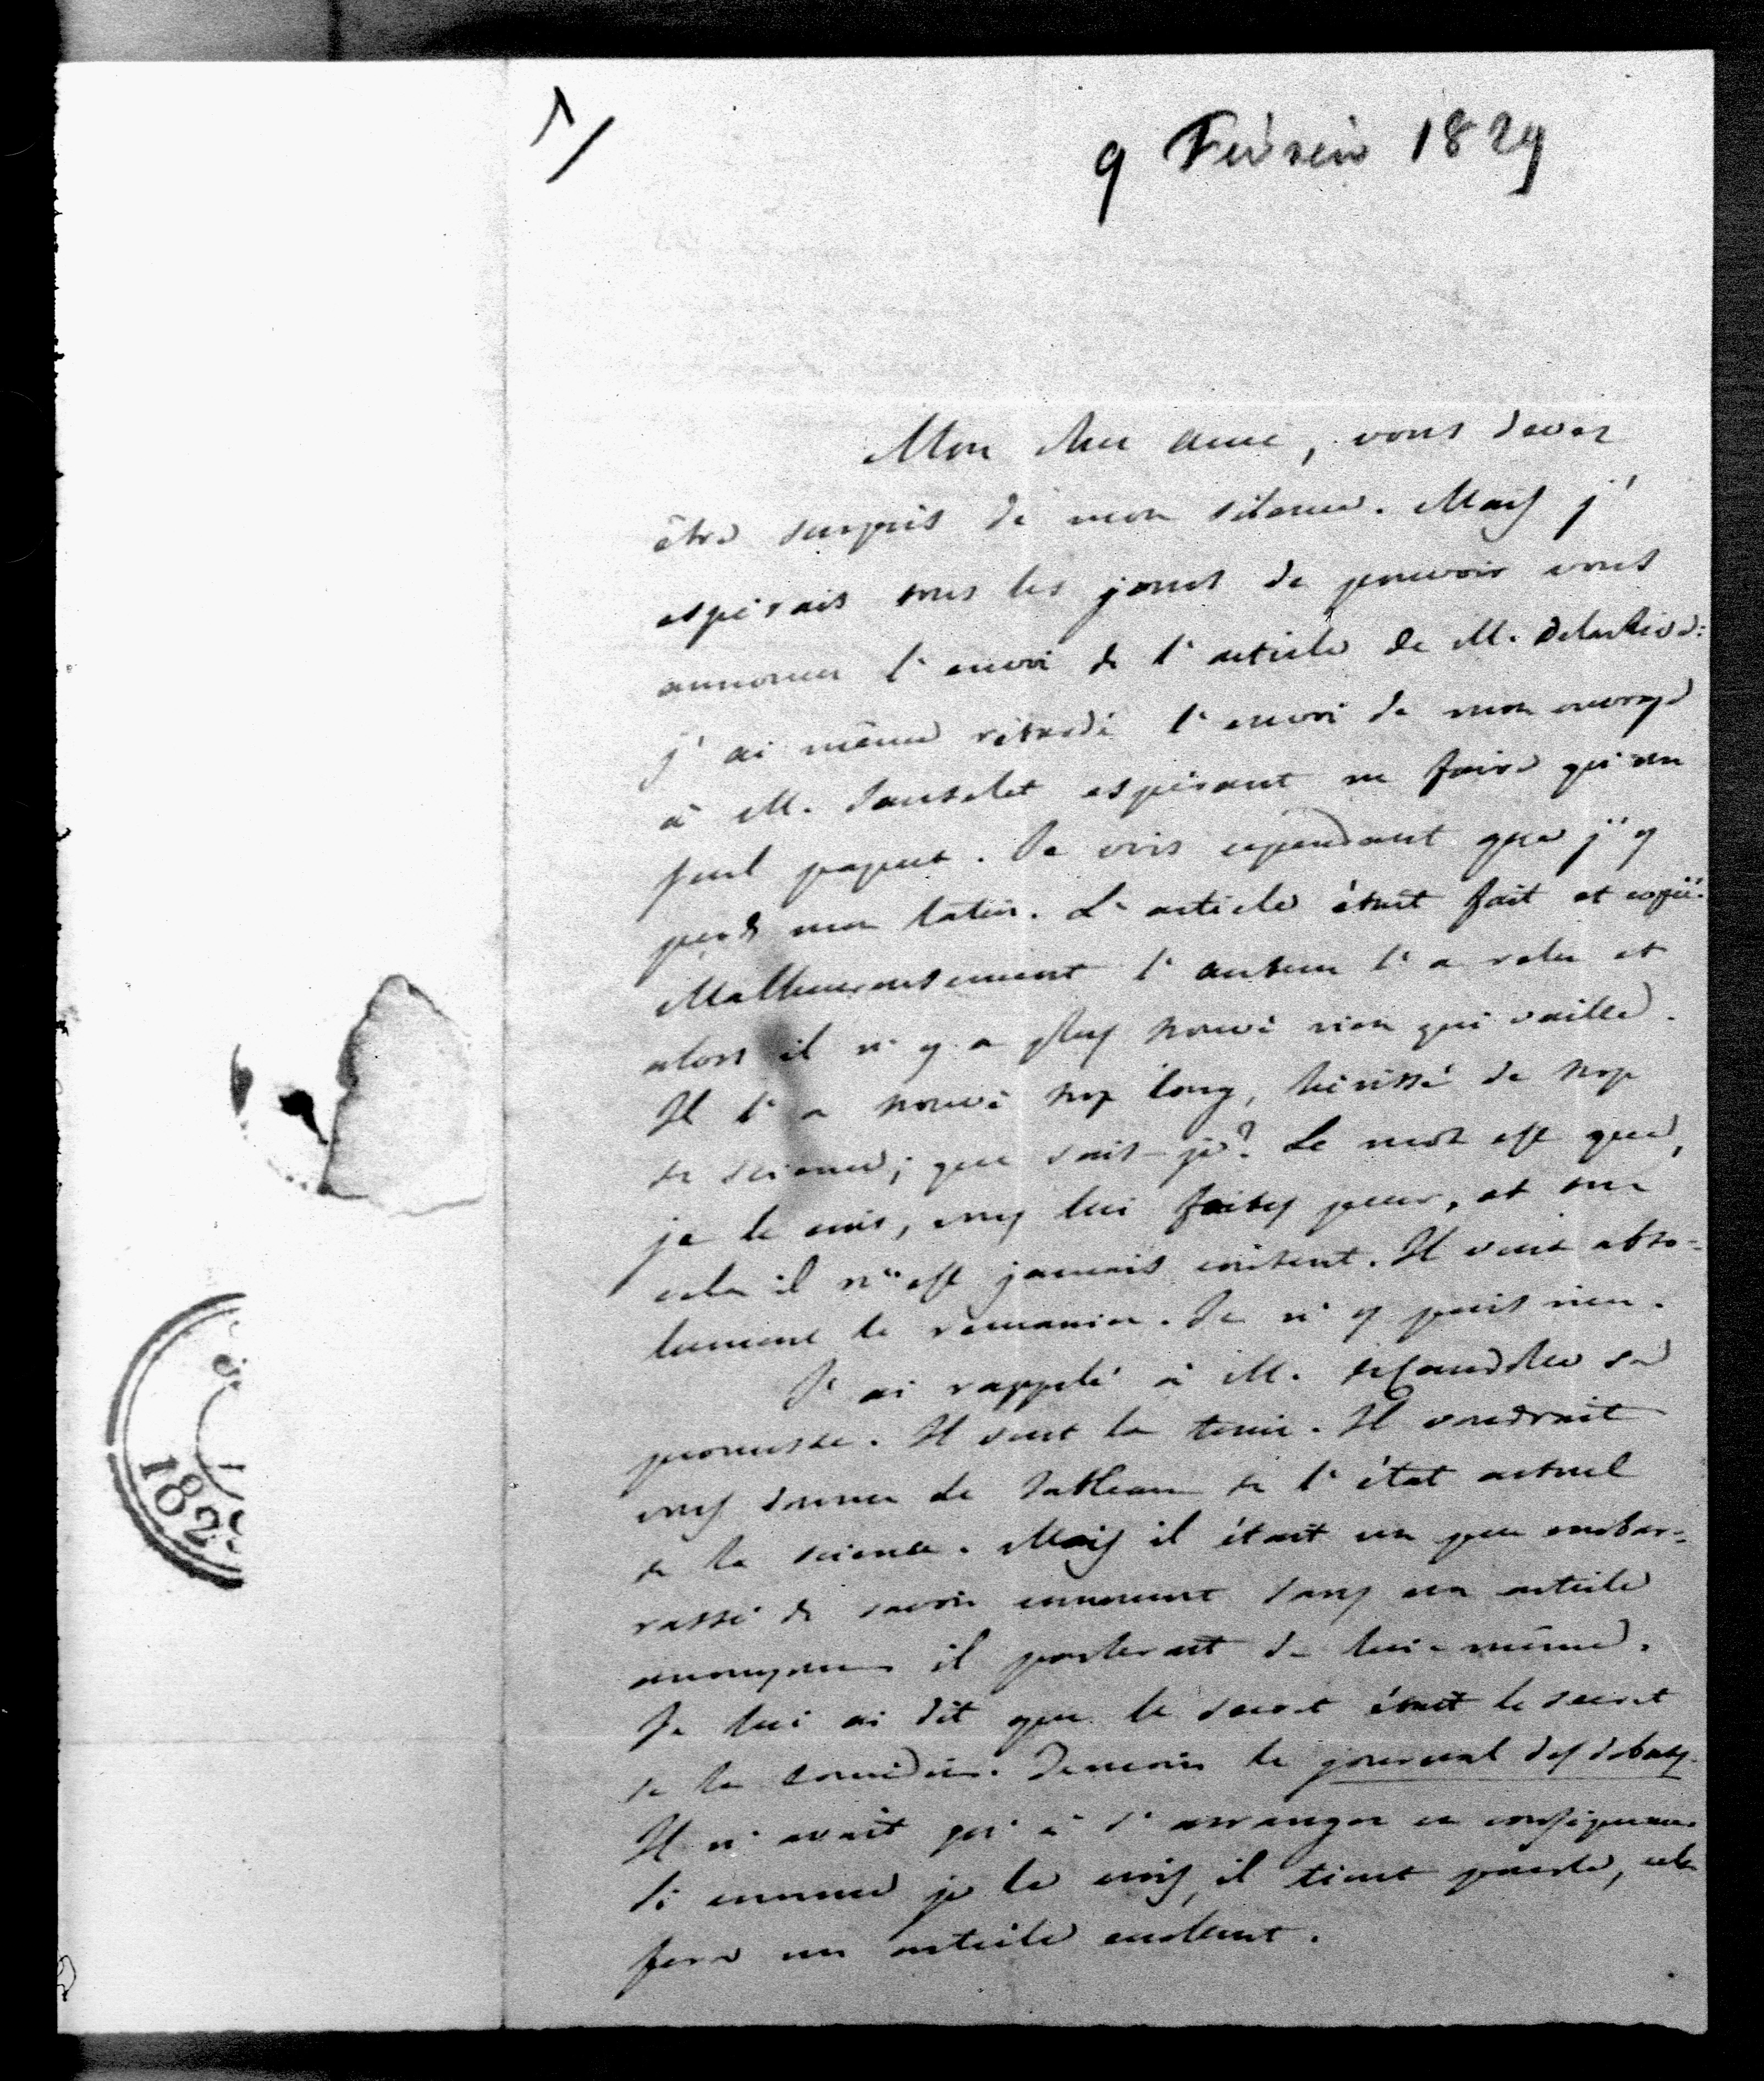 9 Février 1829
Mon cher ami, vous devez
être surpris de mon silence. Mais j'
espérais tous les jours de pouvoir vous
annoncer l'envoi de l'article de M. Delarive:
j'ai même retardé l'envoi de mon ouvrage
à M. Sautelet espérant ne faire qu'un
seul paquet. Je vois cependant que j'y
perds mon latin. L'article était fait et copié.
Malheureusement l'auteur l'a relu et
alors il n'y a plus trouvé rien qui vaille.
Il l'a trouvé trop long, hérissé de trop
de science; que sais-je? Le mot est que,
je le crois, vous lui faites peur, et sur
cela il n'est jamais content. Il veut abso=
lument le remanier. Je n'y puis rien.
J'ai rappelé à M. de Candolle sa
promesse. Il veut la tenir. Il voudrait
vous donner le tableau de l'état actuel
de la science. Mais il était un peu embar=
rassé de savoir comment dans un article
anonyme il parlerait de lui-même.
Je lui ai dit que le secret était le secret
de la comédie. Témoin le journal des débats.
Il n'avait qu'à s'arranger en conséquence.
Si comme je le crois, il tient parole, cela
fera un article excellent.
182